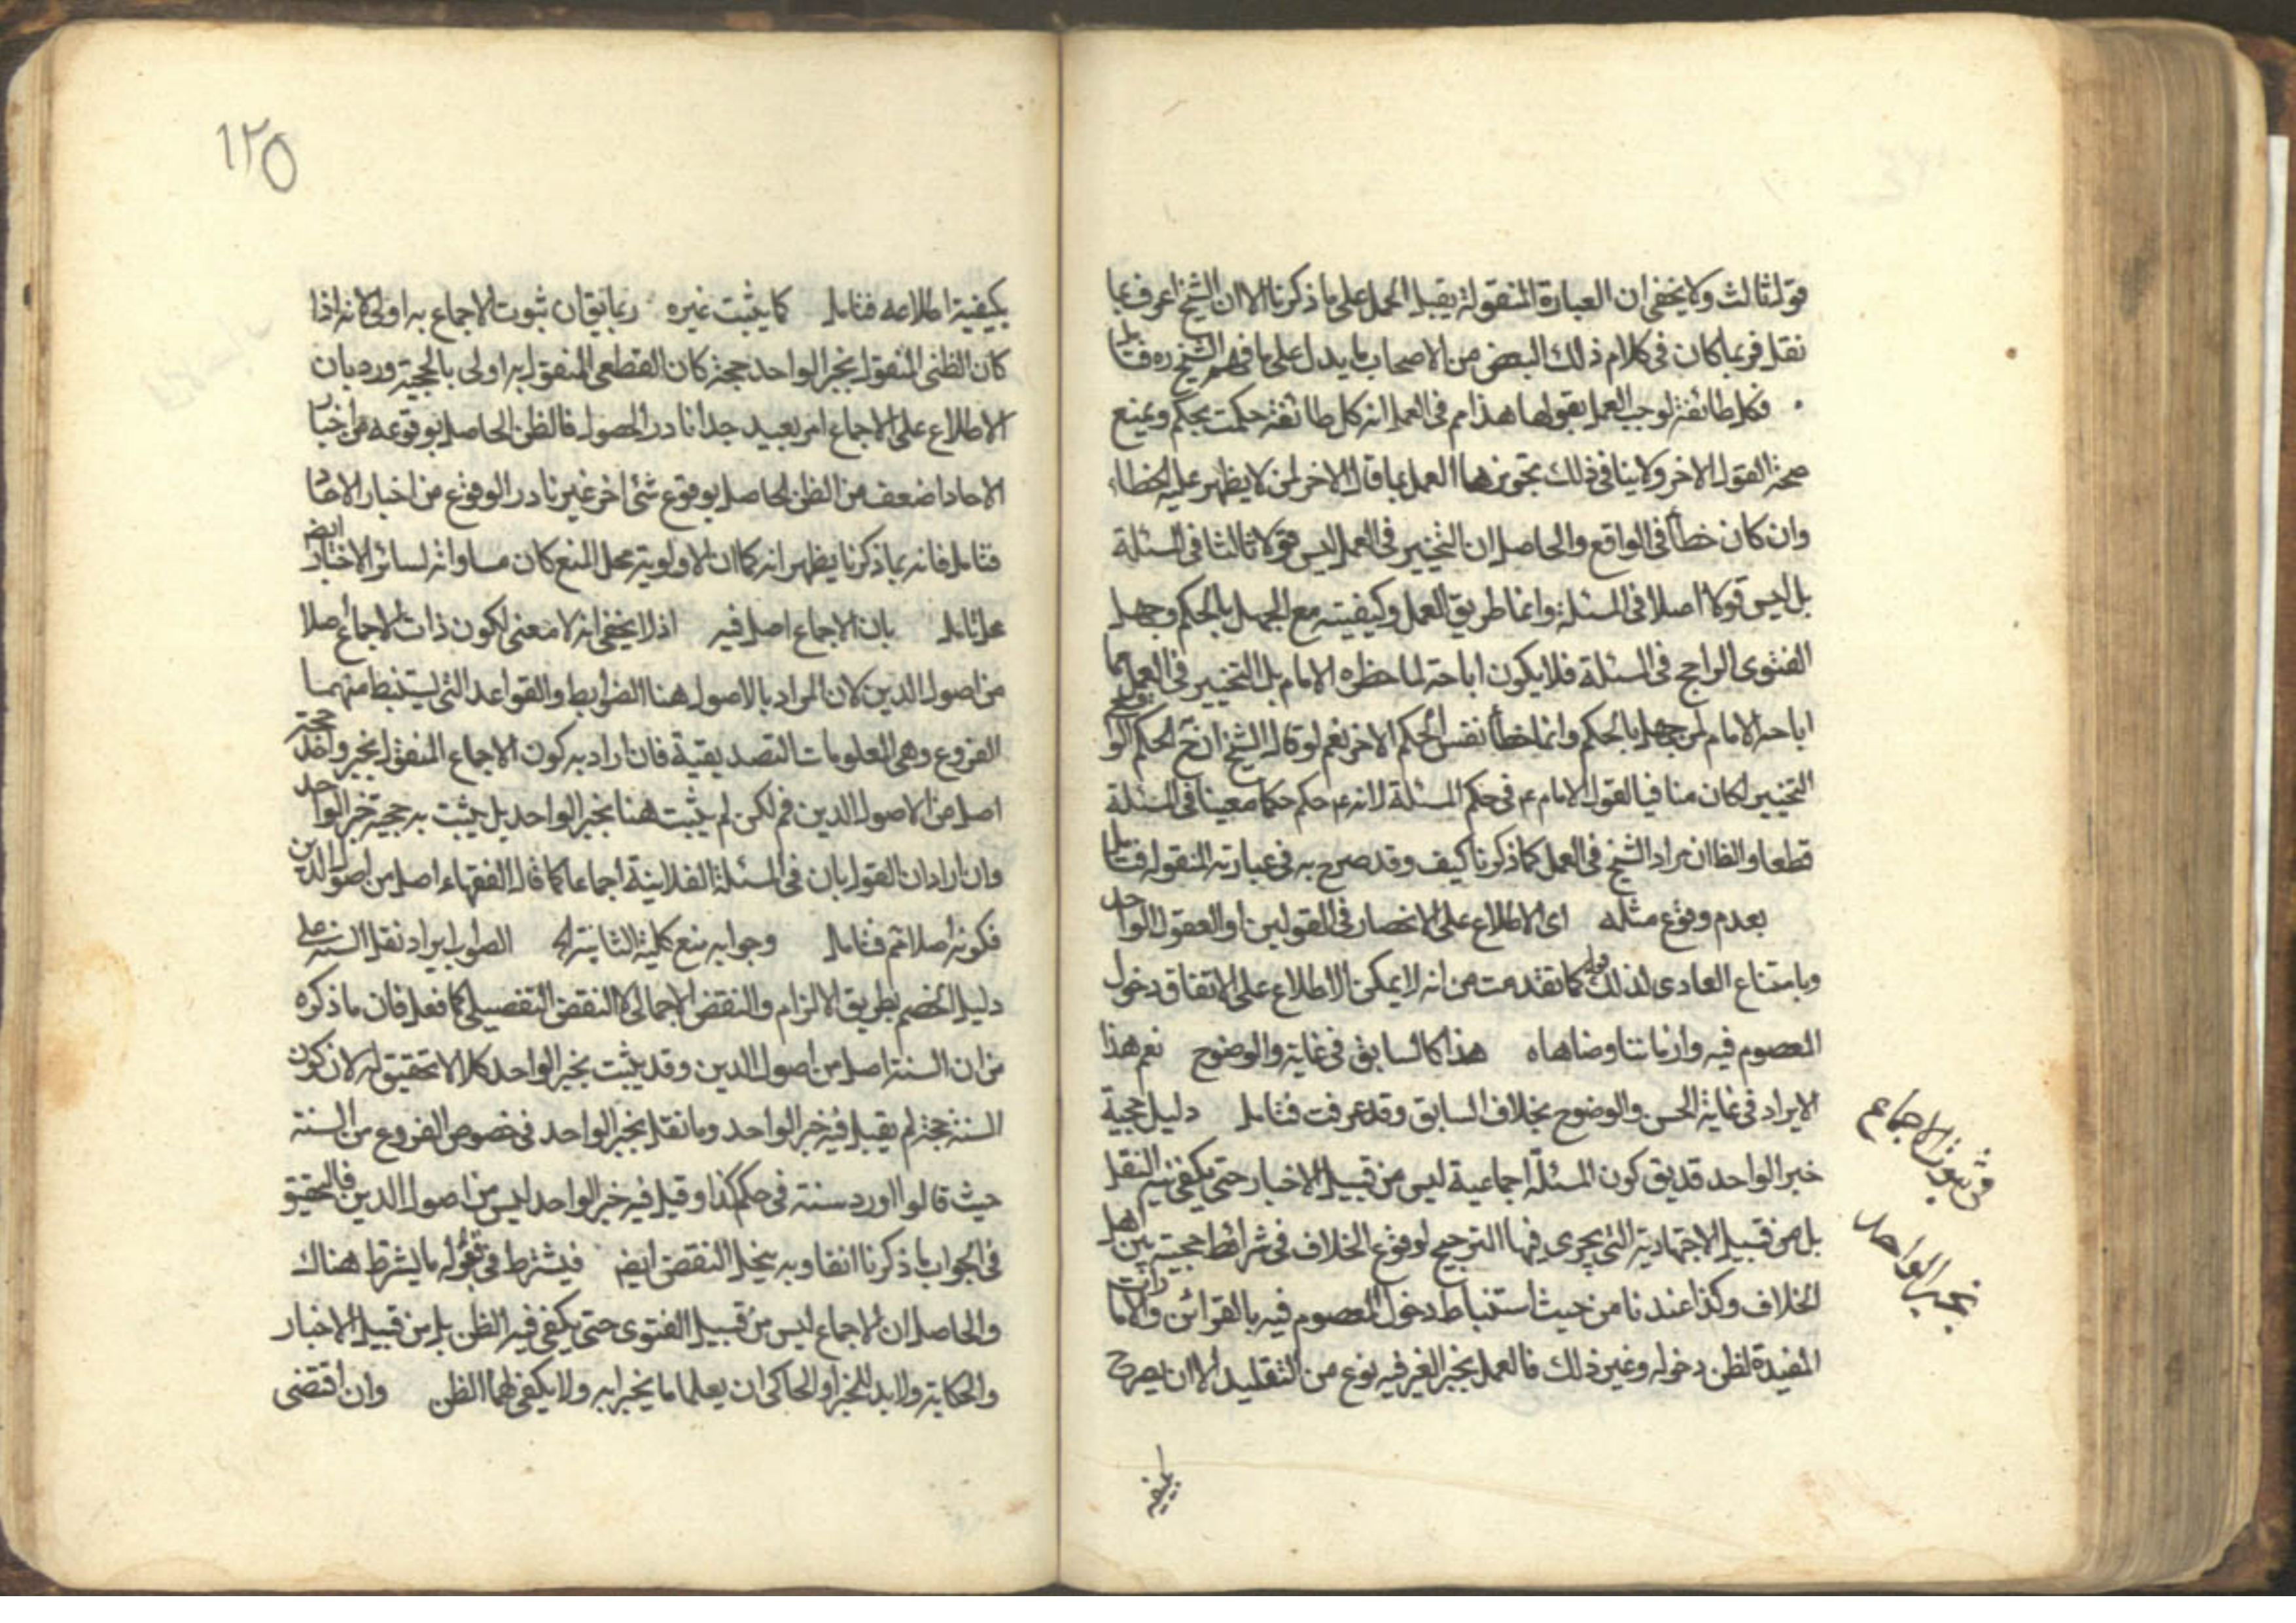 قول ثالث ولا يخفى ان العبارة المنقولة يقبل الحمل على ما ذكرنا الا ان الشيخ اعرف بما
نقل فربما كان في كلام ذلك البعض من الاصحاب ما يدل على ما فهم الشيخ ره فتامل
فكل طائفة لوجب العمل بقولها هذا م في العمل انه كل طائفة حكمت بحكم ويمنع
صحة القول الاخر ولا ينافي ذلك تجويزهما العمل بما قال الاخر لمن لا يظهر عليه الخطاء
وان كان خطأ في الواقع والحاصل ان التخيير في العمل ليس قولا ثالثا في المسئلة
بل ليس قولا اصلا في المسئلة وانما طريق العمل وكيفيته مع الجهل بالحكم وجهل
الفتوى الراجح في المسئلة فلا يكون اباحة لما حظره الامام بل التخيير في العمل مما
اباحه الامام لمن جهل بالحكم وانما خطأ نفس الحكم الاخر نعم لو قال الشيخ ان ح الحكم الواقع
التخيير لكان منافيا لقول الامام ع في حكم المسئلة لانه ع حكم حكما معينا في المسئلة
قطعا والظ ان مراد الشيخ في العمل كما ذكرنا كيف وقد صرح به في عبارته المنقولة فتامل
بعدم وقوع مثله اى الاطلاع على الانحصار في القولين او القول الواحد
وبامتناع العادى لذلك قوله كما تقدمت من انه لا يمكن الاطلاع على الاتفاق دخول
المعصوم فيه وازماننا وضاهاه هذا كالسابق في غاية والوضوح نعم هذا
الايراد في غاية الحسن والوضوح بخلاف السابق وقد عرفت فتامل دليل حجية
خبر الواحد قد يق كون المسئلة اجماعية ليس من قبيل الاخبار حتى يكفي فيه النقل
بل من قبيل الاجتهادية التي يجرى فيها الترجيح لوقوع الخلاف في شرائط حجيته بين اهل
الخلاف وكذا عندنا من حيث استنباط دخول المعصوم فيه بالقرائن والامارات
المفيدة لظن دخوله وغير ذلك فالعمل بخبر الغير فيه نوع من التقليد الا ان يصرح
في ثبوت الاجماع
بخبر الواحد
بكيفية
١٢٥
بكيفية اطلاعه فتامل كما يثبت غيره ربما يق ان ثبوت الاجماع به اولى لانه اذا
كان الظنى المنقول بخبر الواحد حجة كان القطعى المنقول به اولى بالحجية ورد بان
الاطلاع على الاجماع امر بعيد جدا نادر الحصول فالظن الحاصل بوقوعه من اخبار
الاحاد اضعف من الظن الحاصل بوقوع شئ اخر غير نادر الوقوع من اخبار الاحاد
فتامل فانه بما ذكرنا يظهر انه كما ان الاولوية محل المنع كان مساواته لسائر الاخبار ايض
محل تامل بان الاجماع اصل فيه اذ لا يخفى انه لا معنى لكون ذات الاجماع اصلا
من اصول الدين لان المراد بالاصول هنا الضوابط والقواعد التي يستنبط منهما
الفروع وهى المعلومات التصديقية فان اراد به كون الاجماع المنقول بخبر واحد حجة
اصل من الاصول الدين فم لكن لم يثبت هنا بخبر الواحد بل يثبت به حجية خبر الواحد
وان اراد ان القول بان في المسئلة الفلانية اجماعا كما قال الفقهاء اصل من اصول الدين
فكونه اصلا ثم فتامل وجوابه منع كلية الثانية الخ الصواب ايراد نقل السنة على
دليل الخصم بطريق الالزام والنقض الاجمالى لا النقض التفصيلى كما فعل فان ما ذكره
من ان السنة اصل من اصول الدين وقد يثبت بخبر الواحد كلا لا تحقيق له لان كون
السنة حجة لم يقبل فيه خبر الواحد وما نقل بخبر الواحد في خصوص الفروع من السنة
حيث قالوا اورد سنة في حكم كذا وقيل فيه خبر الواحد ليس من اصول الدين فالتحقيق
في الجواب ما ذكرنا انفا وبه ينحل النقض ايض فيشترط في قبوله ما يشترط هناك
والحاصل ان الاجماع ليس من قبيل الفتوى حتى يكفي فيه الظن بل من قبيل الاخبار
والحكاية ولا بد للمخبر او الحاكى ان يعلما ما يخبرا به ولا يكفي لهما الظن وان اقتضى